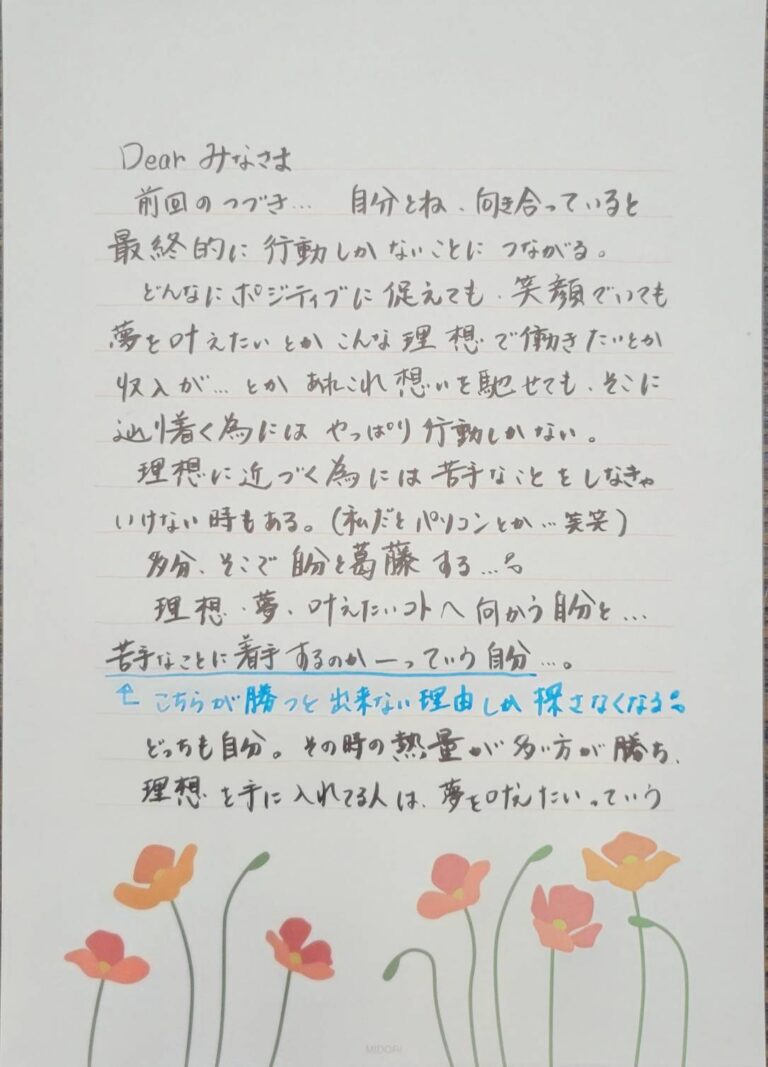 Dear みなさま
前回のつづき… 自分とね、向き合っていると
最終的に行動しかないことにつながる。
どんなにポジティブに促えても、笑顔でいても
夢を叶えたいとかこんな理想で働きたいとか
収入が…とかあれこれ想いを馳せても、そこに
辿り着く為にはやっぱり行動しかない。
理想に近づく為には苦手なことをしなきゃ
いけない時もある。(私だとパソコンとか…笑笑)
多分、そこで自分と葛藤する…。
理想・夢・叶えたいコトへ向かう自分と…
苦手なことに着手するのかーっていう自分…。
↑こちらが勝つと出来ない理由しか探さなくなる。
どっちも自分。その時の熱量が多い方が勝ち、
理想を手に入れてる人は、夢を叶えたいっていう
MIDORI